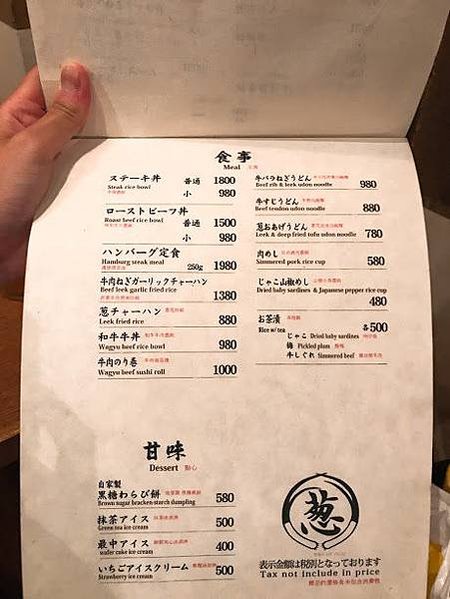 食事
Meal
ステーキ丼 普通 1800
Steak rice bowl
小 980
ローストビーフ丼
Roast beef rice bowl 普通 1500
小 980
ハンバーグ定食
Hamburg steak meal 250g 1980
牛肉ねぎガーリックチャーハン
Beef leek garlic fried rice
1380
葱チャーハン
Leek fried rice 880
和牛牛丼
Wagyu beef rice bowl 980
牛肉のり巻
Wagyu beef sushi roll 1000
牛バラねぎうどん
Beef rib & leek udon noodle 980
牛すじうどん
Beef tendon udon noodle 880
葱おあげうどん
Leek & deep fried tofu udon noodle 780
肉めし
Simmered pork rice cup 580
じゃこ山椒めし
Dried baby sardines & Japanese pepper rice cup
480
お茶漬
Rice w/tea 各500
じゃこ Dried baby sardines
梅 Pickled plum
牛しぐれ Simmered beef
甘味
Dessert 點心
自家製
黒糖わらび餅 580
Brown sugar bracken-starch dumpling
抹茶アイス 500
Green tea ice cream
最中アイス 400
wafer cake ice cream
いちごアイスクリーム 500
Strawberry ice cream
葱
表示金額は税別となっております
Tax not include in price